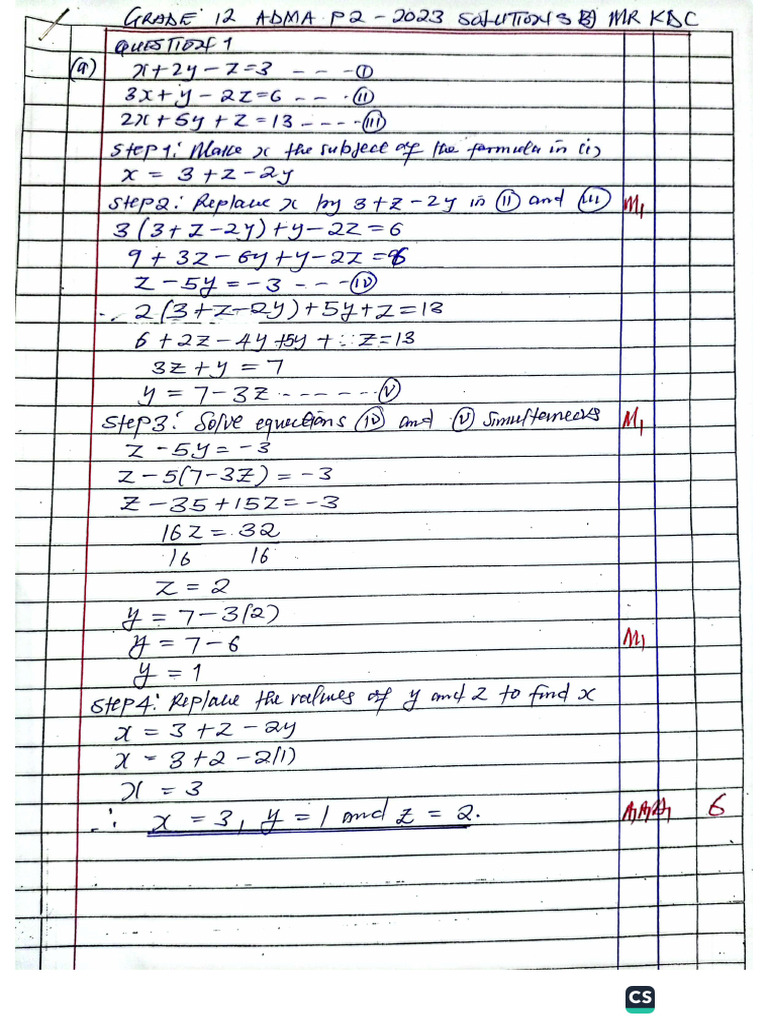 GRADE 12 ADMA P2 - 2023 SOLUTIONS By MR KBC
QUESTION 1
(a) x+2y-z=3 --- (i)
3x+y-2z=6 --- (ii)
2x+5y+z=13 ---- (iii)
Step 1: Make x the subject of the formula in (i)
x = 3+z-2y
Step 2: Replace x by 3+z-2y in (ii) and (iii) M1
3(3+z-2y)+y-2z=6
9+3z-6y+y-2z=6
z-5y=-3 --- (iv)
2(3+z-2y)+5y+z=13
6+2z-4y+5y+z=13
3z+y=7
y=7-3z ------ (v)
Step 3: Solve equations (iv) and (v) simultaneous M1
z-5y=-3
z-5(7-3z)=-3
z-35+15z=-3
16z=32
16 16
z=2
y=7-3(2)
y=7-6 M1
y=1
Step 4: Replace the values of y and z to find x
x=3+z-2y
x=3+2-2(1)
x=3
∴ x=3, y=1 and z=2. A1A1A1 6
CS